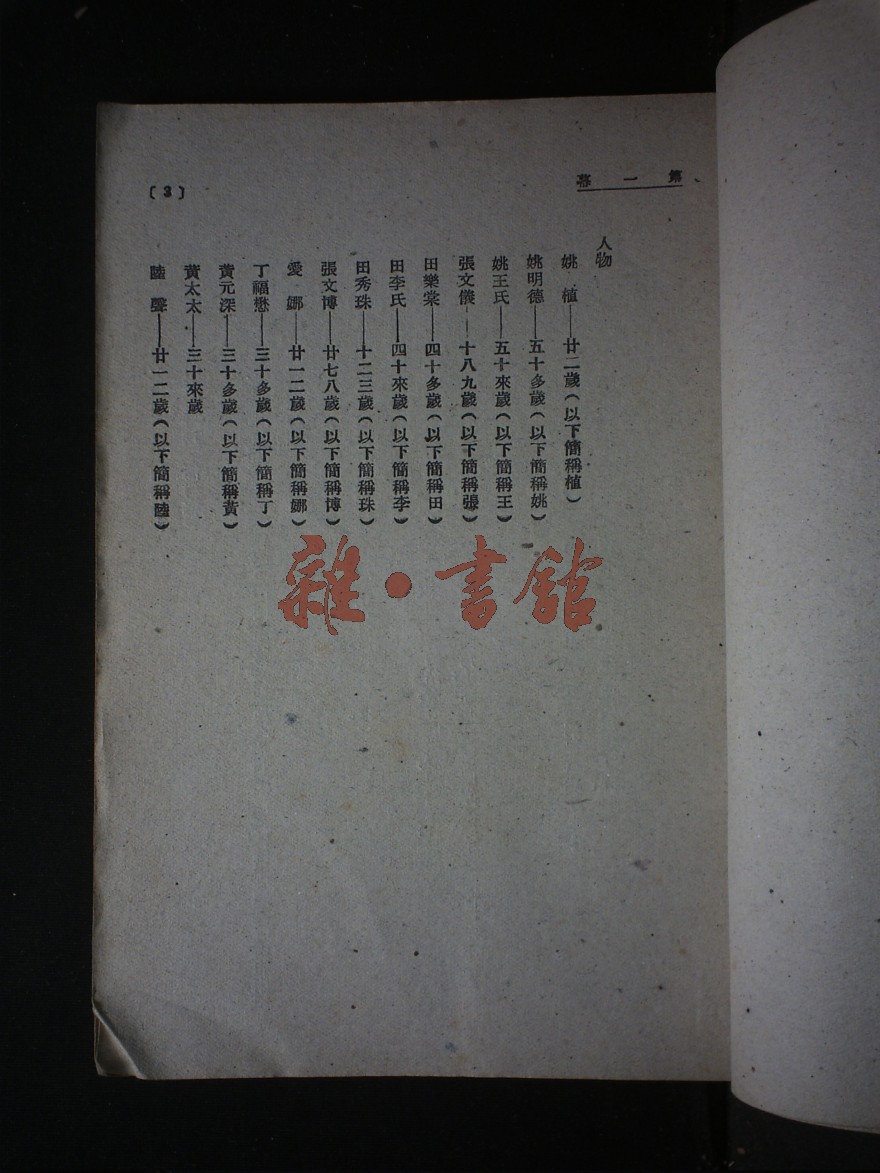 第一幕
人物
姚　植——廿二歲（以下簡稱植）
姚明德——五十多歲（以下簡稱姚）
姚王氏——五十來歲（以下簡稱王）
張文儀——十八九歲（以下簡稱張）
田樂棠——四十多歲（以下簡稱田）
田李氏——四十來歲（以下簡稱李）
田秀珠——十二三歲（以下簡稱珠）
張文博——廿七八歲（以下簡稱博）
愛　娜——廿一二歲（以下簡稱娜）
丁福懋——三十多歲（以下簡稱丁）
黃元深——三十多歲（以下簡稱黃）
黃太太——三十來歲
陸　聲——廿一二歲（以下簡稱陸）
〔3〕
雜·書館